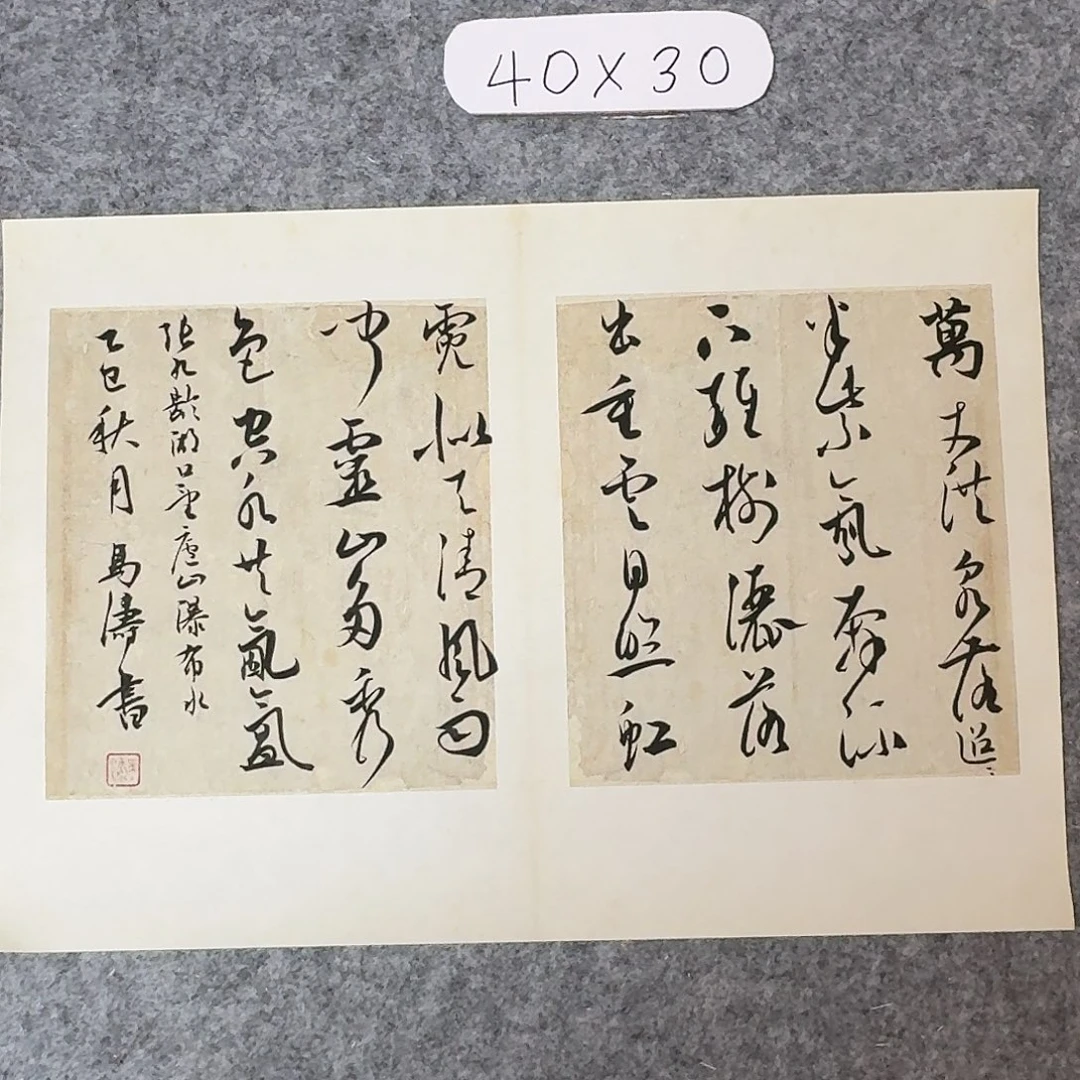 40X30
萬丈洪泉落迢〻
半紫氛奔流
下雜樹灑落
出重雲日照虹
霓似天清風雨
聞靈山多秀
色空水共氤氳
張九齡湖口望廬山瀑布水
乙巳秋月馬濤書